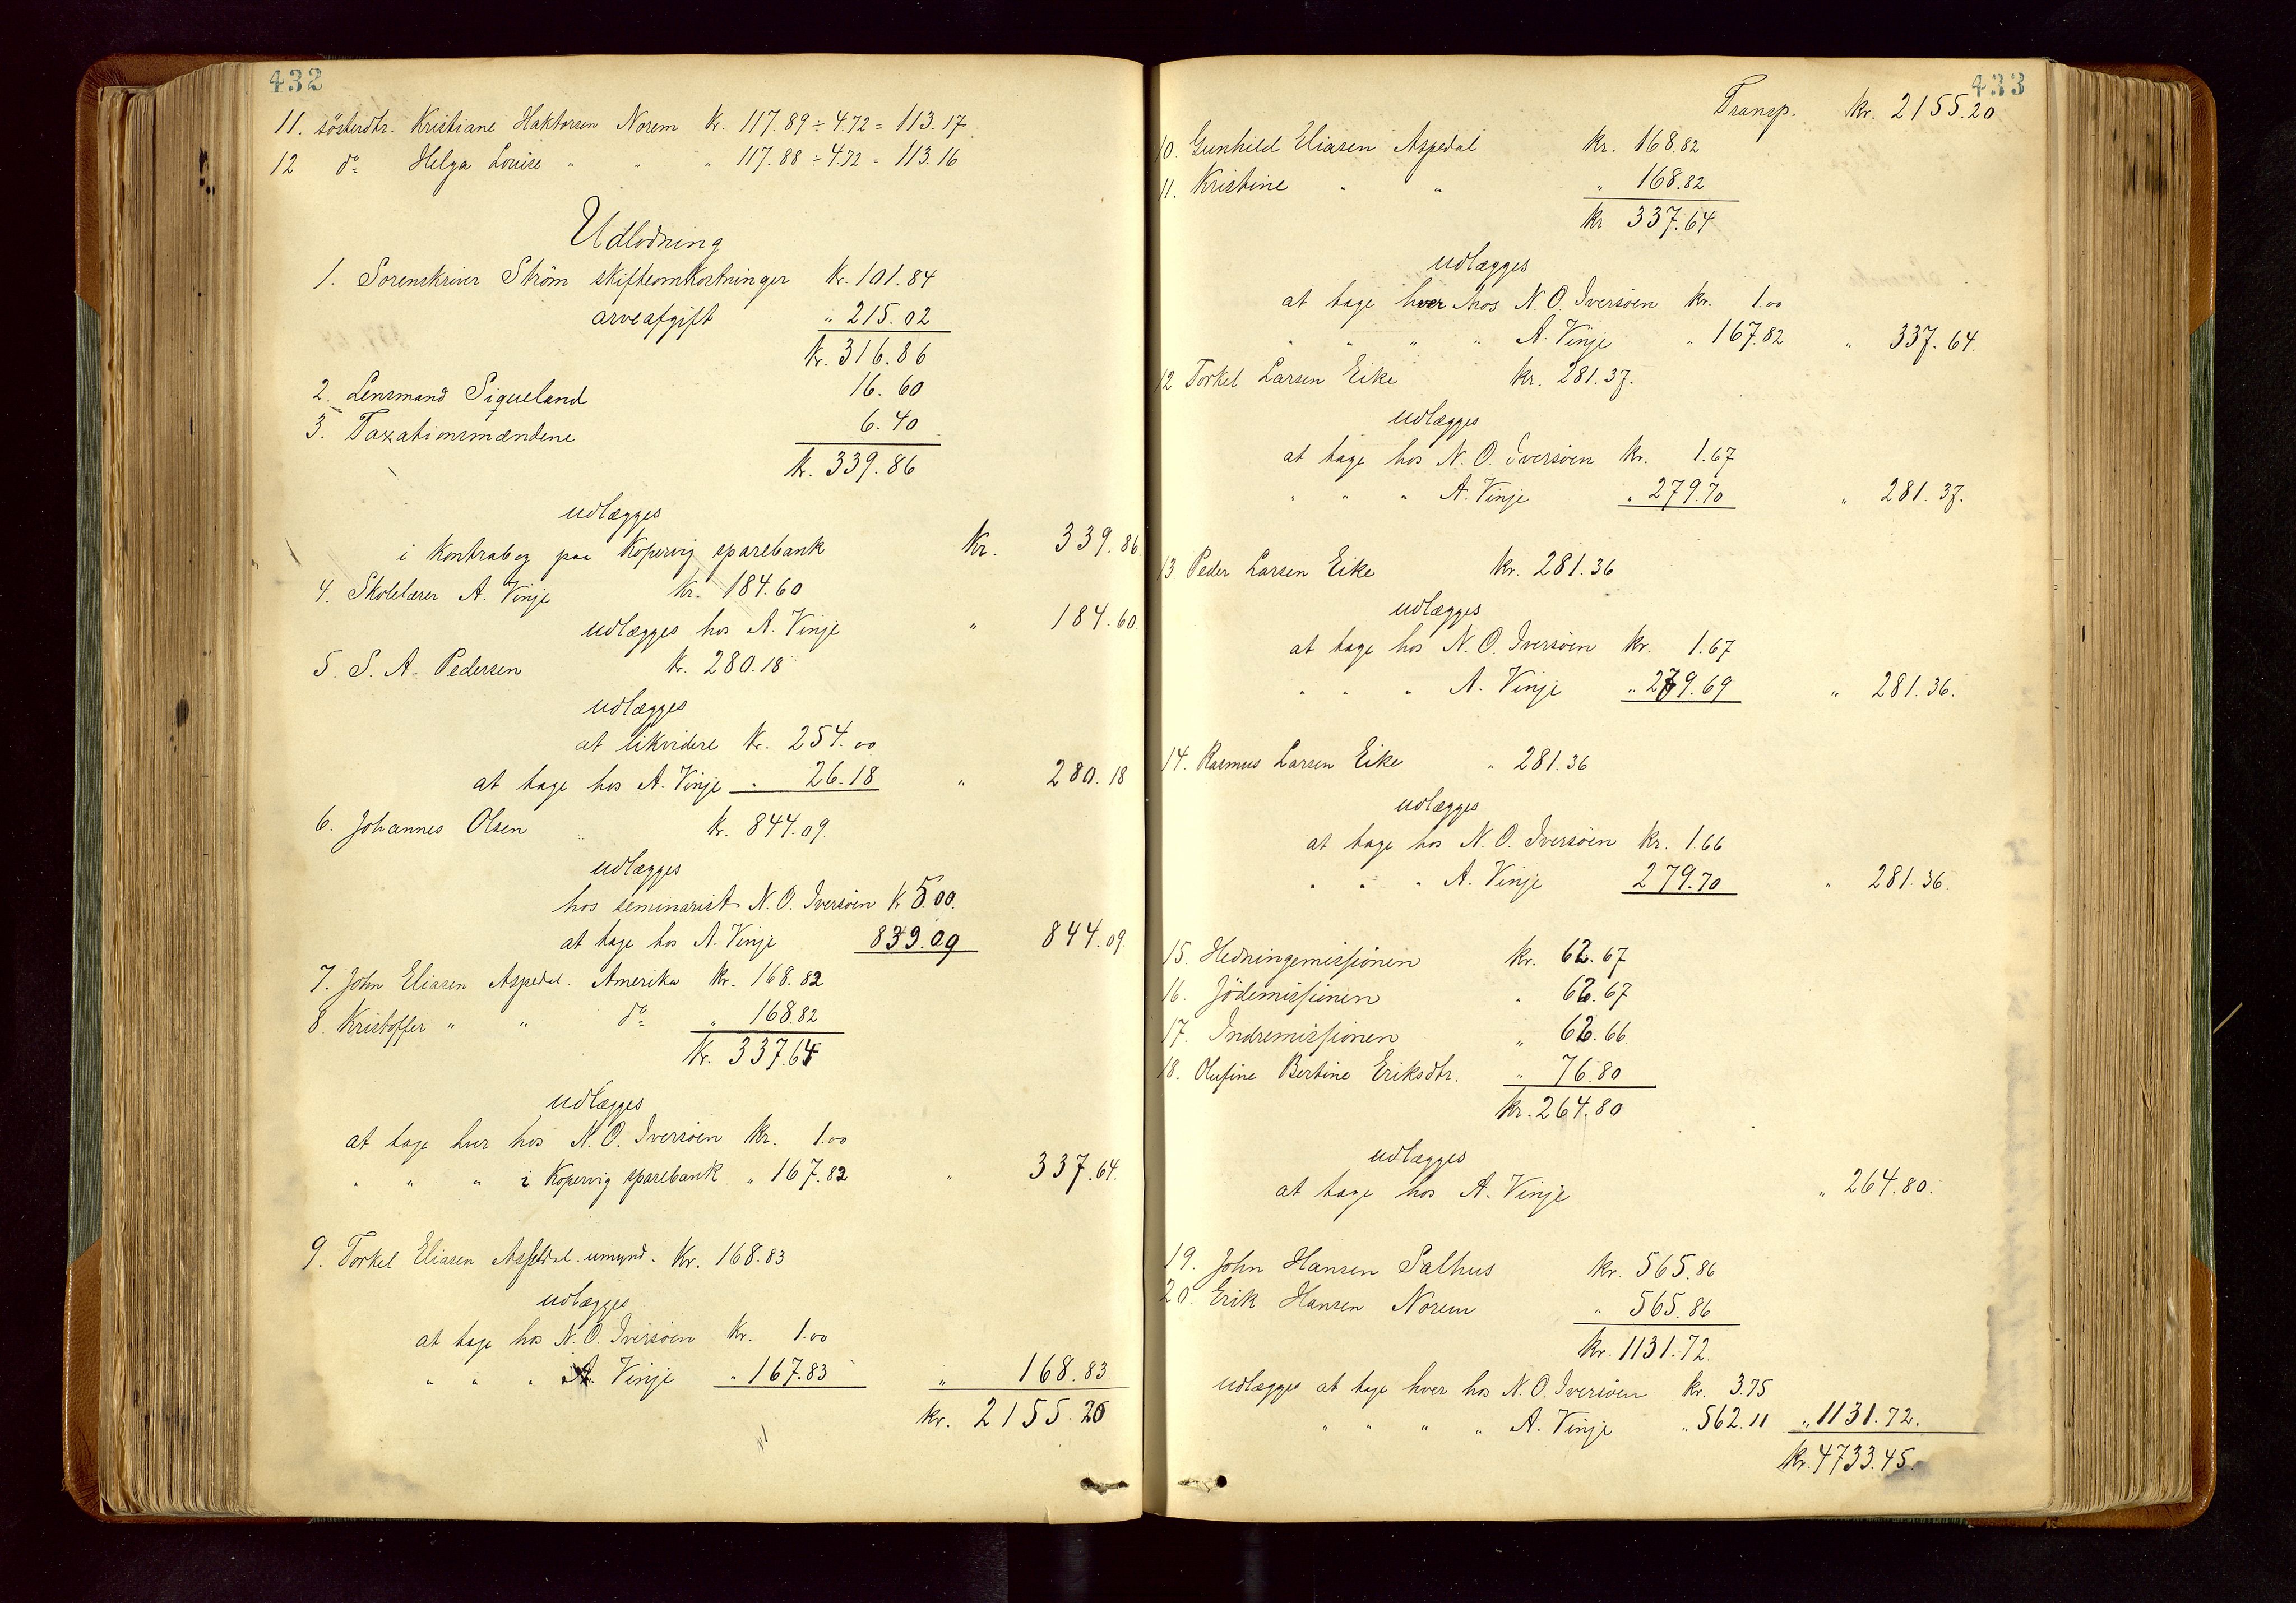 432
11. søsterdtr. Kristiane Haktorsen Norem Kr. 117.89 ÷ 4.72 = 113.17
12 do Helga Louise " " " 117.88 ÷ 4.72 = 113.16
Udlodning
1. Sorenskriver Strøm skifteomkostninger Kr. 101.84
arveafgift " 215.02
Kr. 316.86
2. Lensmand Siqueland 16.60
3. Taxationsmændene 6.40
Kr. 339.86
udlægges
i Kontrabog paa Kopervig sparebank Kr. 339.86
4. Skolelærer A. Vinje Kr. 184.60
udlægges hos A. Vinje " 184.60
5. S. A. Pedersen Kr. 280.18
udlægges
at likvidere Kr. 254.00
at tage hos A. Vinje " 26.18 " 280.18
6. Johannes Olsen Kr. 844.09
udlægges
hos seminarist N. O. Iversøen Kr 5.00.
at tage hos A. Vinje 839.09 844.09.
7. John Eliasen Aspedal. Amerika Kr. 168.82
8. Kristoffer " " do " 168.82
Kr. 337.64
udlægges
at tage hver hos N. O. Iversøen Kr. 1.00
" " " i Kopervig sparebank " 167.82 " 337.64.
9. Torkel Eliasen Aspedal. umynd. Kr. 168.83
udlægges
at tage hos N. O. Iversøen Kr. 1.00
" " " A. Vinje " 167.83 " 168.83
Kr. 2155.20
433
Transp. Kr. 2155.20
10. Gunhild Eliasen Aspedal Kr. 168.82
11. Kristine " " " 168.82
Kr 337.64
udlægges
at tage hver hos N. O. Iversøen Kr. 1.00
" " " " A. Vinje " 167.82 " 337.64.
12 Torkel Larsen Eike Kr. 281.37.
udlægges
at tage hos N. O. Iversøen Kr. 1.67
" " " A. Vinje " 279.70 " 281.37.
13. Peder Larsen Eike Kr. 281.36
udlægges
at tage hos N. O. Iversøen Kr. 1.67
" " " A. Vinje " 279.69 " 281.36.
14. Rasmus Larsen Eike " 281.36
udlægges
at tage hos N. O. Iversøen Kr. 1.66
" " " A. Vinje 279.70 " 281.36.
15. Hedningemissionen Kr. 62.67
16. Jødemissionen " 62.67
17. Indremissionen " 62.66
18. Olufine Bertine Eriksdtr. " 76.80
Kr. 264.80
udlægges
at tage hos A. Vinje " 264.80.
19. John Hansen Salhus Kr. 565.86
20. Erik Hansen Norem " 565.86
Kr. 1131.72.
udlægges at tage hver hos N. O. Iversøen Kr. 3.75
" " " " A. Vinje " 562.11 " 1131.72.
Kr. 4733.45.